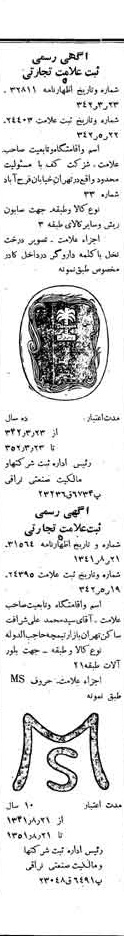 آگهی رسمی
ثبت علامت تجارتی
شماره و تاریخ اظهارنامه ۳۲۸۱۱ ـ
۲۳ر۳ر۳۴۲
شماره وتاریخ ثبت علامت ۲۴۴۰۳ـ
۲۲ر۵ر۳۴۲
اسم واقامتگاه وتابعیت صاحب
علامت ـ شرکت کف با مسئولیت
محدود واقع درتهران خیابان فرح آباد
شماره ۳۳
نوع کالا وطبقه ـ جهت صابون
ریش وسایر کالای طبقه ۳
اجزاء علامت ـ تصویر درخت
نخل باکلمه داروگر درداخل کادر
مخصوص طبق نمونه
مدت اعتبار ده سال
از ۲۳ر۳ر۳۴۲
تا ۲۳ر۳ر۳۵۲
رئیس اداره ثبت شرکتهاو
مالکیت صنعتی نراقی
آگهی رسمی
ثبت علامت تجارتی
شماره و تاریخ اظهارنامه ۳۱۵۶۴ـ
۲۱ر۸ر۱۳۴۱
شماره وتاریخ ثبت علامت ۲۴۳۹۵ـ
۱۹ر۵ر۳۴۲
اسم واقامتگاه وتابعیت صاحب
علامت ـ آقای سید محمد علی شرافت
ساکن تهران بازار تیمچه حاجب الدوله
نوع کالا و طبقه ـ جهت بلور
آلات طبقه ۲۱
اجزاء علامت ـ حروف MS
طبق نمونه
MS
مدت اعتبار ۱۰ سال
از ۲۱ر۸ر۱۳۴۱
تا ۲۱ر۸ر۱۳۵۱
رئیس اداره ثبت شرکتها
و مالکیت صنعتی نراقی